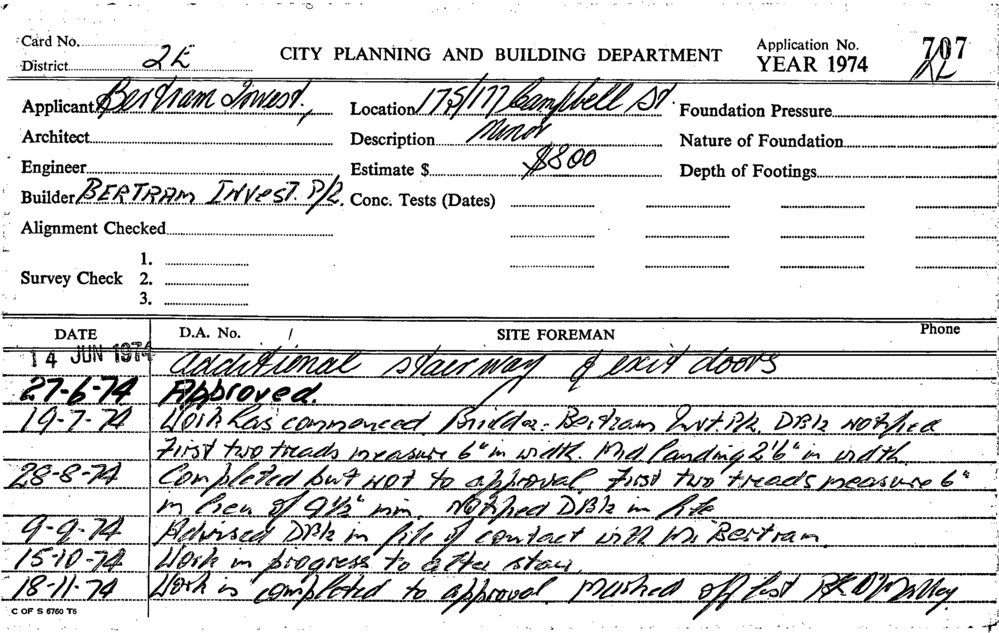 Card No.
District 2E
CITY PLANNING AND BUILDING DEPARTMENT
Application No. 707
YEAR 1974
Applicant Bertram Invest.,
Location 175/177 Campbell St.
Foundation Pressure
Architect
Description Minor
Nature of Foundation
Engineer
Estimate $ $800
Depth of Footings
Builder BERTRAM INVEST. P/L.
Conc. Tests (Dates)
Alignment Checked
Survey Check
1.
2.
3.
DATE
D.A. No. /
SITE FOREMAN
Phone
14 JUN 1974 additional stairway & exit doors
27-6-74 Approved.
19-7-74 Work has commenced. Builder:- Bertram Invt. P/L. Notified
First two treads measure 6" in width. Mid landing 2'6" in width.
28-8-74 Completed but not to approval. First two treads measure 6"
in lieu of 9½" min. Notified in file
9-9-74 Advised in file of contact with Mr Bertram
15-10-74 Work in progress to alter stair.
18-11-74 Work is completed to approval. Marked off list
C OF S 6760 T6